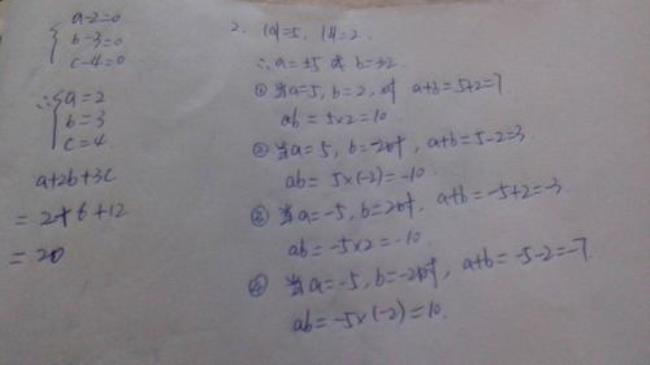 a-2=0
b-3=0
c-4=0
∴ a=2
b=3
c=4
a+2b+3c
=2+6+12
=20
2. |a|=5, |b|=2.
∴a=±5 或 b=±2
① 当a=5, b=2, 时 a+b=5+2=7
ab=5×2=10
② 当a=5, b=-2时, a+b=5-2=3
ab=5×(-2)=-10
③ 当a=-5, b=2时, a+b=-5+2=-3
ab=-5×2=-10
④ 当a=-5, b=-2时, a+b=-5-2=-7
ab=-5×(-2)=10.